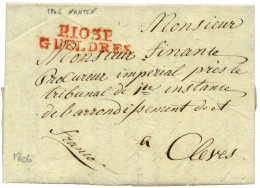 1806 XANTEN
P103P
GUELDRES
Monsieur
Monsieur Finante
Procureur imperial près le
tribunal de 1re instance
de l'arrondissement de et
a Cleves
franco
1806